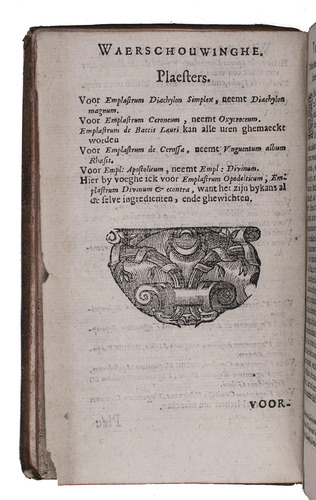 WAERSCHOUWINGHE.
Plaesters.
Voor Emplastrum Diachylon Simplex, neemt Diachylon
magnum.
Voor Emplastrum Ceroneum, neemt Oxycroceum.
Emplastrum de Baccis Lauri kan alle uren ghemaeckt
worden
Voor Emplastrum de Cerussa, neemt Unguentum album
Rhasis.
Voor Empl: Apostolicum, neemt Empl: Divinum.
Hier by voeghe ick voor Emplastrum Opodelticum, Em-
plastrum Divinum & econtra, want het zijn bykans al
de selve ingredienten, ende ghewichten.
VOOR-